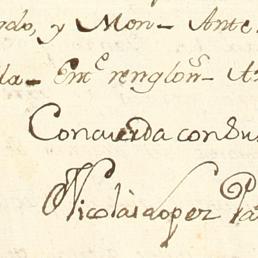 rdo, y Mon- Ante
la- Em^e renglon^s- A
Concuerda con su
Nicolás Lopez Pa